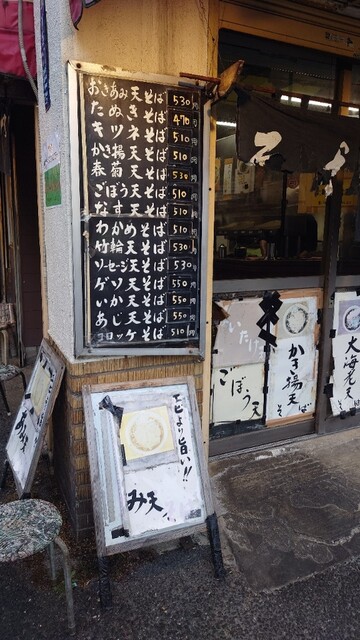 おきあみ天そば 530円
たぬきそば 470円
キツネそば 510円
かき揚天そば 510円
春菊天そば 530円
ごぼう天そば 510円
なす天そば 510円
わかめそば 510円
竹輪天そば 530円
ソーセージ天そば 530円
ゲソ天そば 550円
いか天そば 550円
あじ天そば 550円
コロッケそば 510円
エビより旨い!!
み天
ごぼう天
かき揚天
そば
大海老天